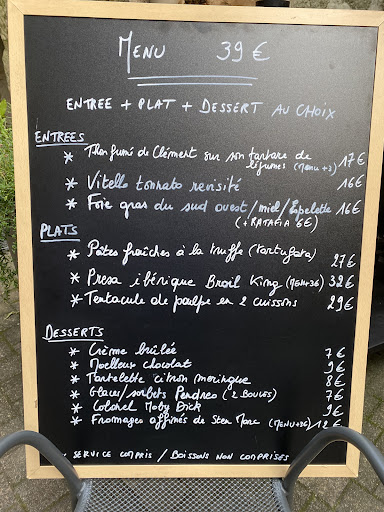 MENU 39 €
ENTREE + PLAT + DESSERT AU CHOIX
ENTREES
* Thon fumé de Clément sur son tartare de
légumes (Menu +2) 17 €
* Vitello tonnato revisité 16 €
* Foie gras du sud ouest / miel / Espelette 16 €
(+ RATAFIA 6€)
PLATS
* Pâtes fraîches à la truffe (Tartufata) 27 €
* Presa ibérique Broil King (MENU+3€) 32 €
* Tentacule de poulpe en 2 cuissons 29 €
DESSERTS
* Crème brûlée 7 €
* Moelleux chocolat 9 €
* Tartelette citron meringue 8 €
* Glaces/sorbets Pendreo (2 BOULES) 7 €
* Colonel Moby Dick 9 €
* Fromages affinés de Sten Marc (MENU+3€) 12 €
SERVICE COMPRIS / BOISSONS NON COMPRISES